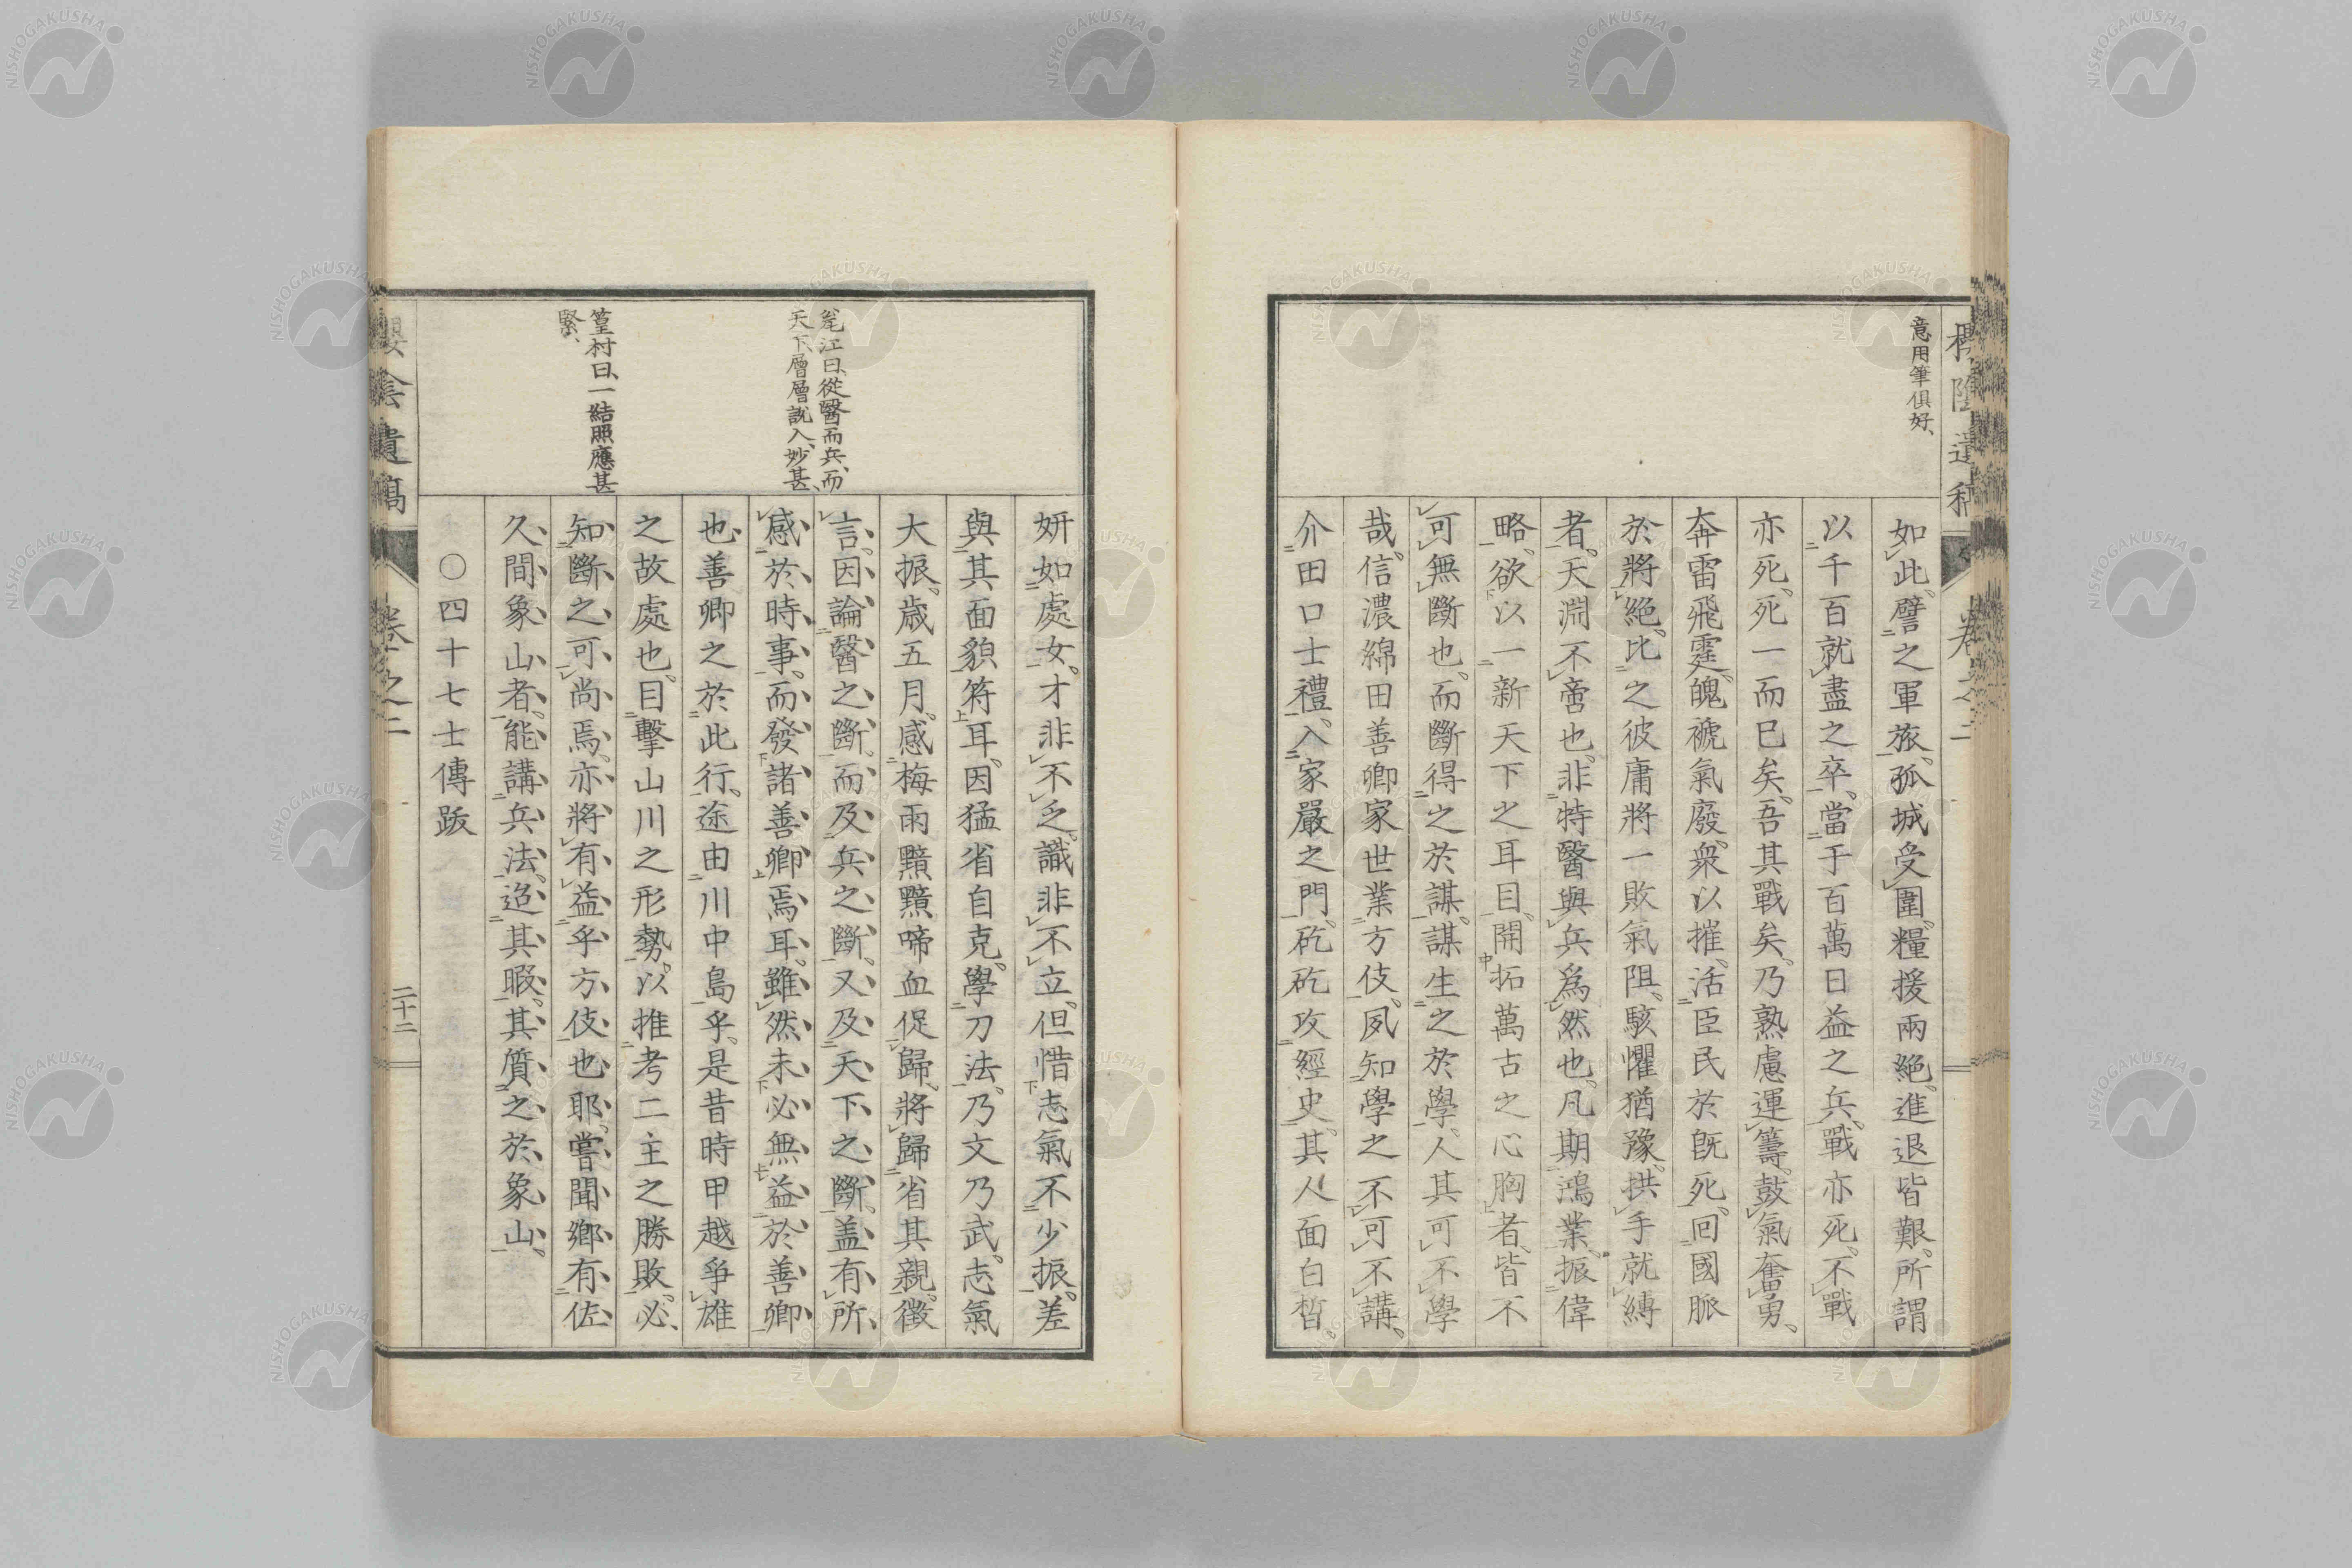 意用筆俱好、
如此。譬之軍旅、孤城受圍。糧援兩絕。進退皆艱。所謂
以千百就盡之卒。當于百萬日益之兵。戰亦死。不戰
亦死。死一而已矣。吾其戰矣。乃熟慮運籌。鼓氣奮勇、
奔雷飛霆。魄褫氣廢。衆以摧。活臣民於既死。回國脈
於將絕。比之彼庸將一敗氣阻。駭懼猶豫。拱手就縛
者。天淵不啻也。非特醫與兵爲然也。凡期鴻業。振偉
略。欲以一新天下之耳目。開拓萬古之心胸者。皆不
可無斷也。而斷得之於謀。謀生之於學。人其可不學
哉。信濃綿田善卿家世業方伎。夙知學之不可不講。
介田口士禮。入家嚴之門。矻矻攻經史。其人面白皙。
妍如處女。才非不乏。識非不立。但惜志氣不少振。差
與其面貌符耳。因猛省自克。學刀法。乃文乃武。志氣
大振。歲五月。感梅雨黯黯啼血促歸。將歸省其親。徵
言。因論醫之斷。而及兵之斷。又及天下之斷。蓋有所
感於時事。而發諸善卿焉耳。雖然未必無益於善卿
也。善卿之於此行。途由川中島乎。是昔時甲越爭雄
之故處也。目擊山川之形勢。以推考二主之勝敗。必、
知斷之可尚焉。亦將有益乎方伎也耶。嘗聞鄉有佐
久間象山者。能講兵法。迨其暇。其質之於象山。
〇四十七士傳跋
毳江曰、從醫而兵、而
天下、層層說入、妙甚、
篁村曰、一結照應甚
緊、
卷之二
二十二